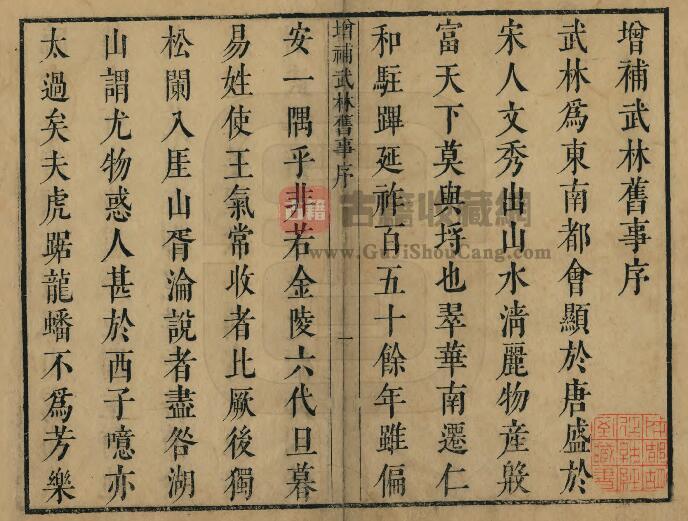 增補武林舊事序
武林爲東南都會顯於唐盛於
宋人文秀出山水淸麗物産殷
富天下莫與埒也翠華南遷仁
和駐蹕延祚百五十餘年雖偏
增補武林舊事序
一
安一隅乎非若金陵六代旦暮
易姓使王氣常收者比厥後獨
松闌入厓山胥淪說者盡咎湖
山謂尤物惑人甚於西子噫亦
太過矣夫虎踞龍蟠不爲芳樂
古籍
古籍收藏網
www.GuJiShouCang.com